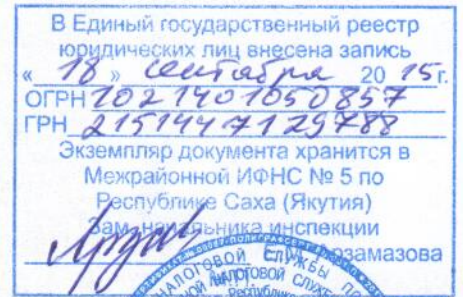 В Единый государственный реестр
юридических лиц внесена запись
«18» сентября 2015г.
ОГРН 1021401050857
ГРН 2151447129788
Экземпляр документа хранится в
Межрайонной ИФНС № 5 по
Республике Саха (Якутия)
Зам. начальника инспекции
Арзамазова